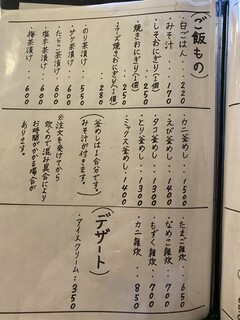 ご飯もの
・白ごはん・・220
・みそ汁・・170
・しそおにぎり(1個)
250
・焼きおにぎり(1個)
250
・チーズ焼きおにぎり(1個)
280
・のり茶漬け・・550
・サケ茶漬け・・600
・たらこ茶漬け・・600
・塩辛茶漬け・・600
・梅茶漬け・・600
・カニ釜めし・・1500
・えび釜めし・・1400
・タコ釜めし・・1300
・とり釜めし・・1300
・ミックス釜めし・・1400
釜めしは1合分です。
みそ汁が付きます。
※注文を受けてから
炊くので混み具合により
お時間がかかる場合が
あります。
・たまご雑炊・・650
・なめこ雑炊・・700
・もずく雑炊・・700
・カニ雑炊・・850
(デザート)
・アイスクリーム：350